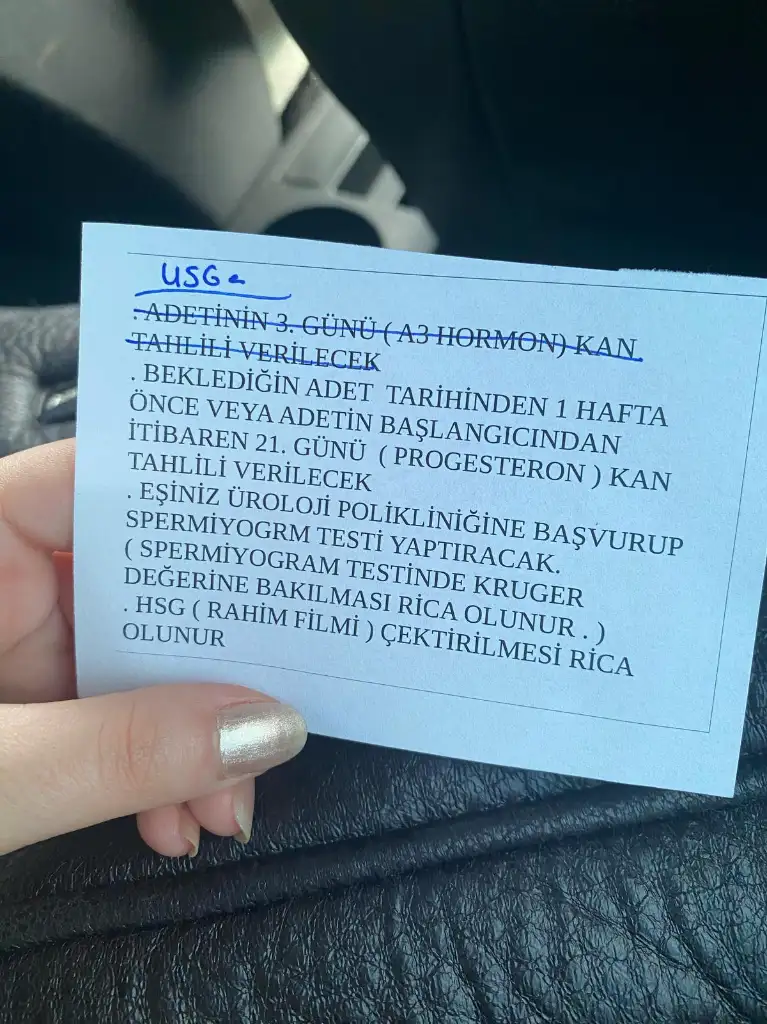 USG
. ADETİNİN 3. GÜNÜ ( A3 HORMON) KAN
TAHLİLİ VERİLECEK
. BEKLEDİĞİN ADET TARİHİNDEN 1 HAFTA
ÖNCE VEYA ADETİN BAŞLANGICINDAN
İTİBAREN 21. GÜNÜ ( PROGESTERON ) KAN
TAHLİLİ VERİLECEK
. EŞİNİZ ÜROLOJİ POLİKLİNİĞİNE BAŞVURUP
SPERMİYOGRM TESTİ YAPTIRACAK.
( SPERMİYOGRAM TESTİNDE KRUGER
DEĞERİNE BAKILMASI RİCA OLUNUR . )
. HSG ( RAHİM FİLMİ ) ÇEKTİRİLMESİ RİCA
OLUNUR